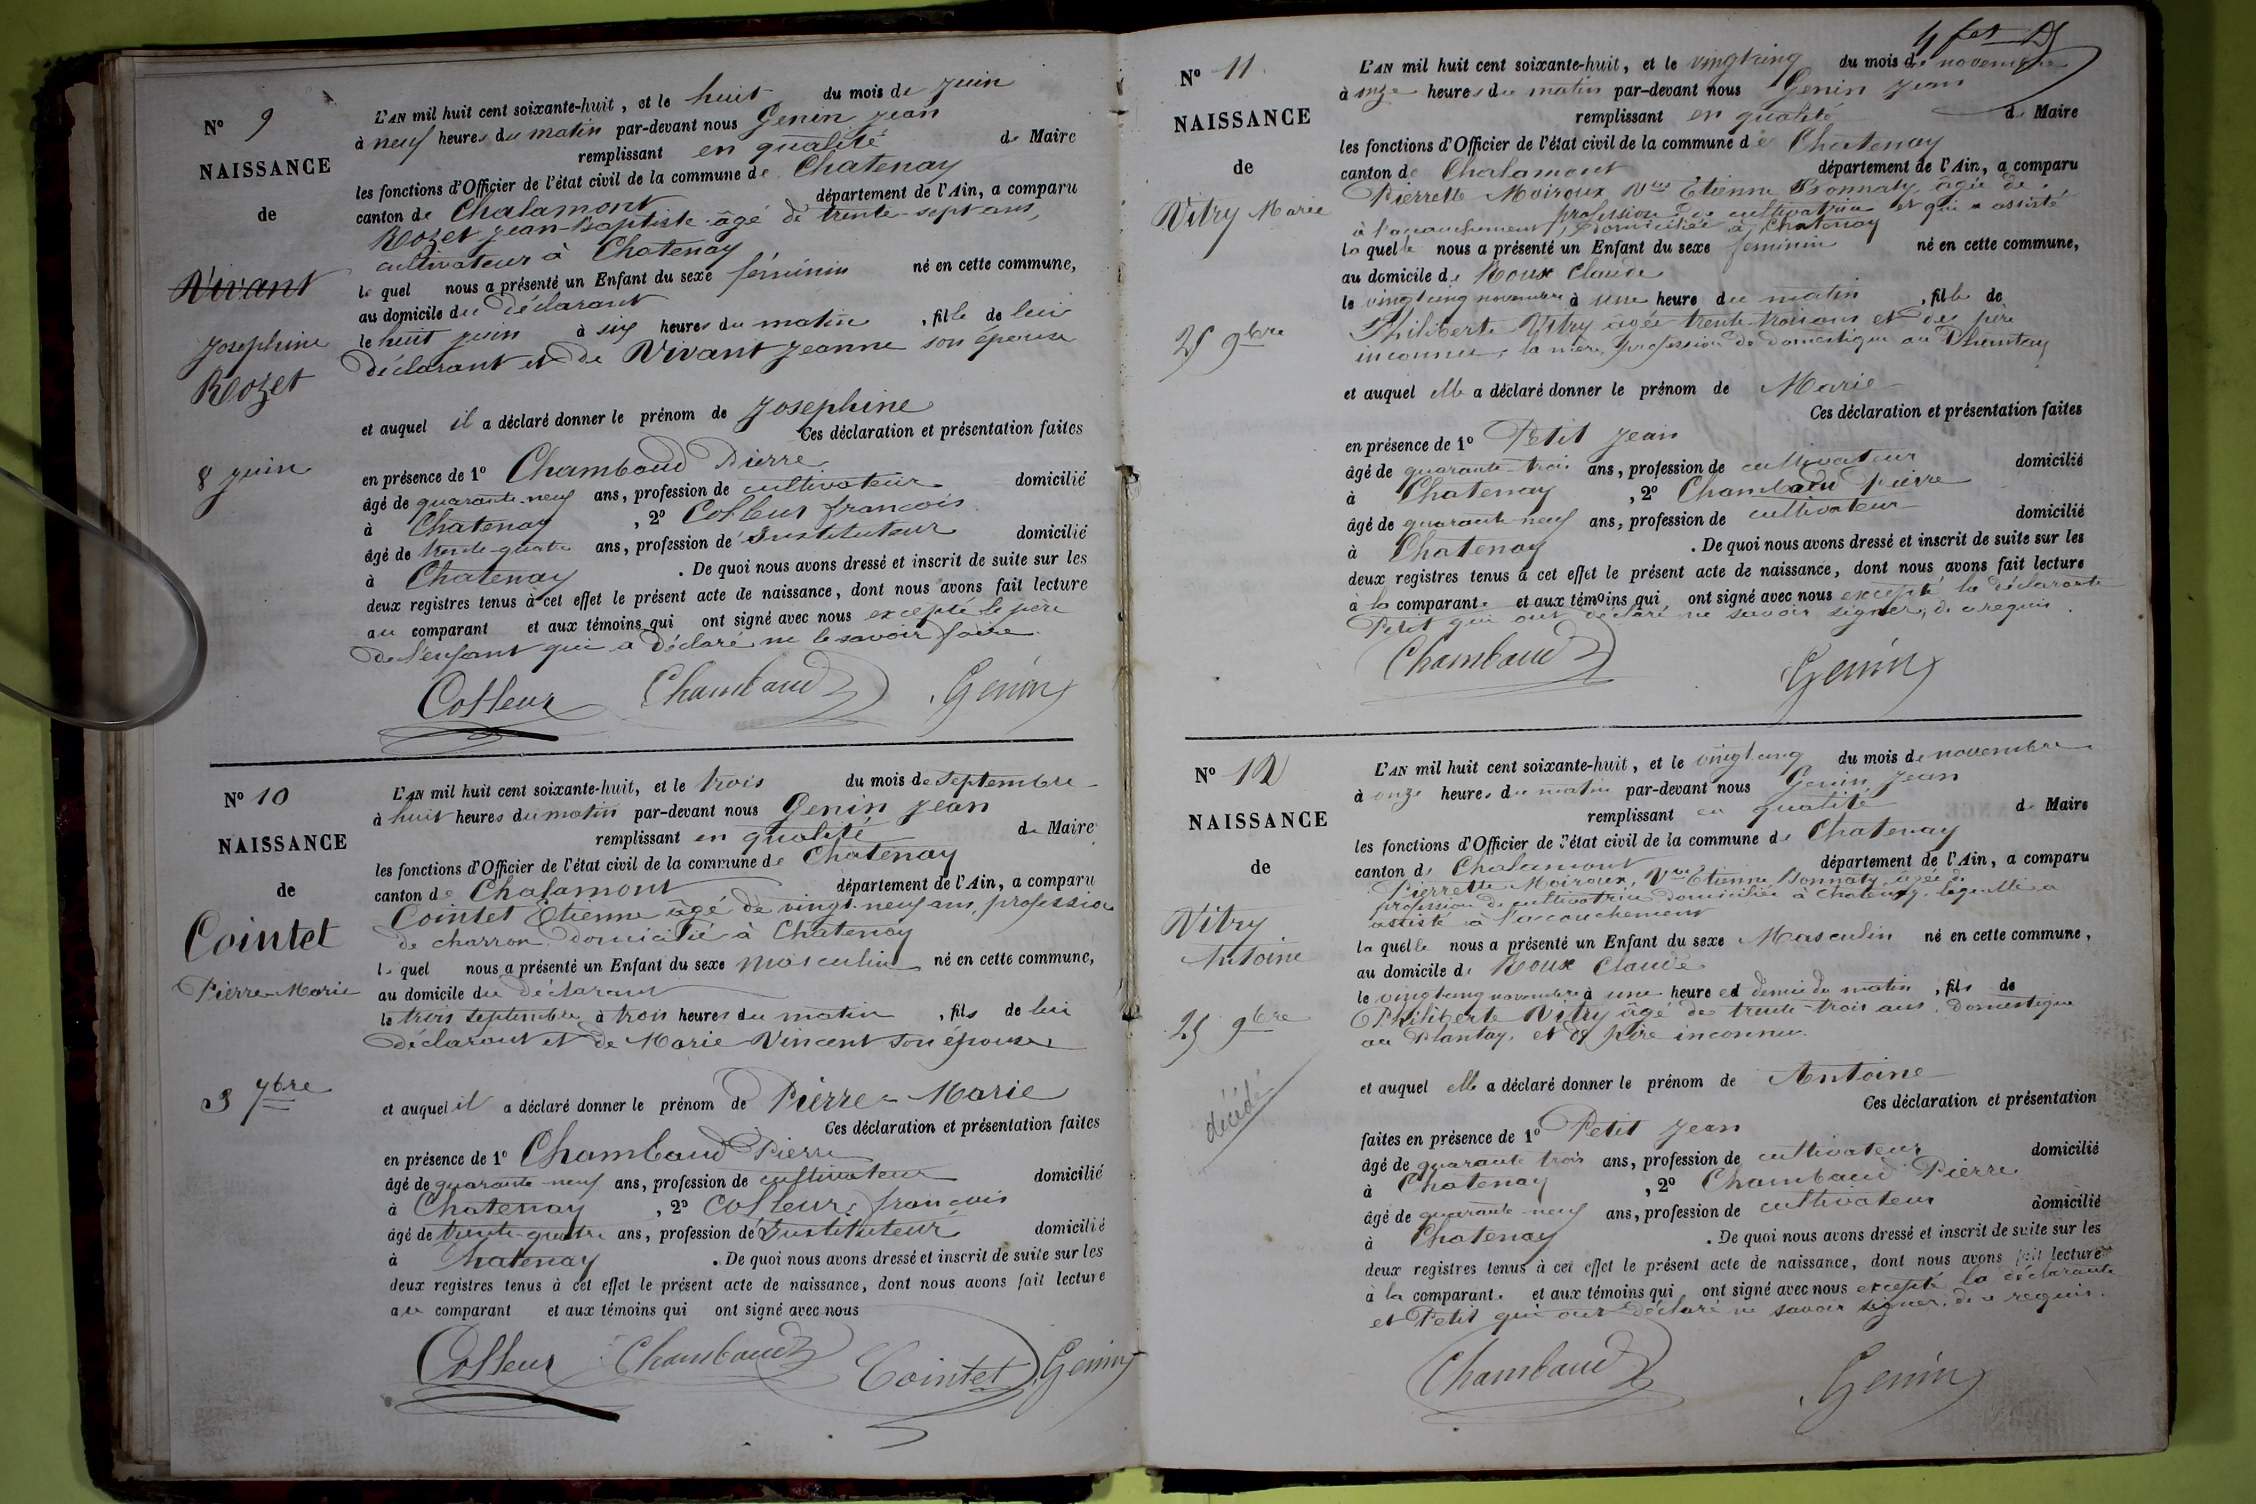 N° 9
NAISSANCE
de
Vivant
Josephine
Rozet
8 juin
L'AN mil huit cent soixante-huit, et le huit du mois de juin
à neuf heures du matin par-devant nous Genin Jean
remplissant en qualité de Maire
les fonctions d'Officier de l'état civil de la commune de Chatenay
canton de Chalamont département de l'Ain, a comparu
Rozet Jean-Baptiste âgé de trente-sept ans,
cultivateur à Chatenay
le quel nous a présenté un Enfant du sexe féminin né en cette commune,
au domicile du déclarant
le huit juin à six heures du matin, fille de lui
déclarant et de Vivant Jeanne son épouse
et auquel il a déclaré donner le prénom de Josephine
Ces déclaration et présentation faites
en présence de 1° Chambaud Pierre
âgé de quarante-neuf ans, profession de cultivateur domicilié
à Chatenay, 2° Colleur françois
âgé de trente-quatre ans, profession de Instituteur domicilié
à Chatenay. De quoi nous avons dressé et inscrit de suite sur les
deux registres tenus à cet effet le présent acte de naissance, dont nous avons fait lecture
au comparant et aux témoins qui ont signé avec nous excepté le père
de l'enfant qui a déclaré ne le savoir faire.
Colleur Chambaud Genin
N° 10
NAISSANCE
de
Cointet
Pierre-Marie
3 7bre
L'AN mil huit cent soixante-huit, et le trois du mois de septembre
à huit heures du matin par-devant nous Genin Jean
remplissant en qualité de Maire
les fonctions d'Officier de l'état civil de la commune de Chatenay
canton de Chalamont département de l'Ain, a comparu
Cointet Etienne âgé de vingt-neuf ans, profession
de charron domicilié à Chatenay
le quel nous a présenté un Enfant du sexe masculin né en cette commune,
au domicile du déclarant
le trois septembre à trois heures du matin, fils de lui
déclarant et de Marie Vincent son épouse
et auquel il a déclaré donner le prénom de Pierre-Marie
Ces déclaration et présentation faites
en présence de 1° Chambaud Pierre
âgé de quarante-neuf ans, profession de cultivateur domicilié
à Chatenay, 2° Colleur, françois
âgé de trente-quatre ans, profession de Instituteur domicilié
à Chatenay. De quoi nous avons dressé et inscrit de suite sur les
deux registres tenus à cet effet le présent acte de naissance, dont nous avons fait lecture
au comparant et aux témoins qui ont signé avec nous
Colleur Chambaud Cointet Genin
N° 11
NAISSANCE
de
Vitry Marie
25 9bre
L'AN mil huit cent soixante-huit, et le vingt cinq du mois de novembre
à onze heures du matin par-devant nous Genin Jean
remplissant en qualité de Maire
les fonctions d'Officier de l'état civil de la commune de Chatenay
canton de Chalamont département de l'Ain, a comparu
Pierrette Moiroux Vve Etienne Bonnaty âgée de
profession de cultivatrice et qui a assisté
à l'accouchement, domiciliée à Chatenay
la quelle nous a présenté un Enfant du sexe feminin né en cette commune,
au domicile de Roux Claude
le vingt cinq novembre à une heure du matin, fille de
Philiberte Vitry âgée trente-trois ans et de père
inconnu, la mère, profession de domestique au Plantay
et auquel elle a déclaré donner le prénom de Marie
Ces déclaration et présentation faites
en présence de 1° Petit Jean
âgé de quarante-trois ans, profession de cultivateur domicilié
à Chatenay, 2° Chambaud Pierre
âgé de quarante-neuf ans, profession de cultivateur domicilié
à Chatenay. De quoi nous avons dressé et inscrit de suite sur les
deux registres tenus à cet effet le présent acte de naissance, dont nous avons fait lecture
à la comparante et aux témoins qui ont signé avec nous excepté la déclarante
Petit qui ont déclaré ne savoir signer, de ce requis.
Chambaud Genin
N° 12
NAISSANCE
de
Vitry
Antoine
25 9bre
décédé
L'AN mil huit cent soixante-huit, et le vingt cinq du mois de novembre
à onze heures du matin par-devant nous Genin Jean
remplissant en qualité de Maire
les fonctions d'Officier de l'état civil de la commune de Chatenay
canton de Chalamont département de l'Ain, a comparu
Pierrette Moiroux, Vve Etienne Bonnaty âgée de
profession de cultivatrice domiciliée à Chatenay, laquelle a
assisté à l'accouchement
la quelle nous a présenté un Enfant du sexe Masculin né en cette commune,
au domicile de Roux Claude
le vingt cinq novembre à une heure et demie du matin, fils de
Philiberte Vitry âgé de trente-trois ans, domestique
au Plantay, et de père inconnu.
et auquel elle a déclaré donner le prénom de Antoine
Ces déclaration et présentation
faites en présence de 1° Petit Jean
âgé de quarante trois ans, profession de cultivateur domicilié
à Chatenay, 2° Chambaud Pierre
âgé de quarante-neuf ans, profession de cultivateur domicilié
à Chatenay. De quoi nous avons dressé et inscrit de suite sur les
deux registres tenus à cet effet le présent acte de naissance, dont nous avons fait lecture
à la comparante et aux témoins qui ont signé avec nous excepté la déclarante
et Petit qui ont déclaré ne savoir signer, de ce requis.
Chambaud Genin